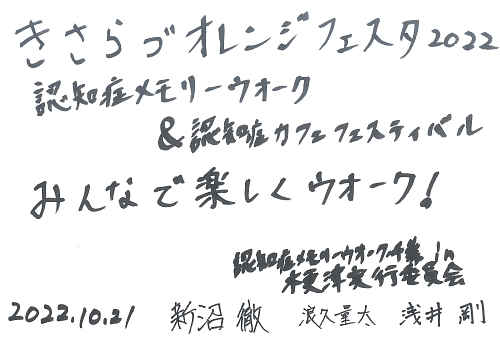 きさらづオレンジフェスタ2022
認知症メモリーウオーク
&認知症カフェフェスティバル
みんなで楽しくウオーク!
認知症メモリーウオーク千葉 in
木更津実行委員会
2022.10.21 新沼 徹 浪久重太 浅井 剛